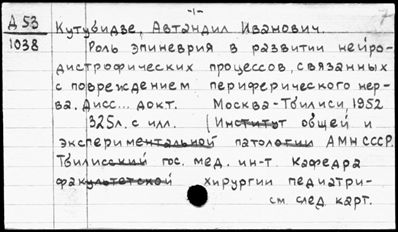 -1-
7
Д 53
1038
Кутубидзе, Автандил Иванович.
Роль эпиневрия в развитии нейро-
дистрофических процессов, связанных
с повреждением периферического нер-
ва. Дисс... докт. Москва-Тбилиси, 1952
325л. с илл. (Институт общей и
экспериментальной патологии АМН СССР.
Тбилисский гос. мед. ин-т. Кафедра
факультетской хирургии педиатри-
см след карт.